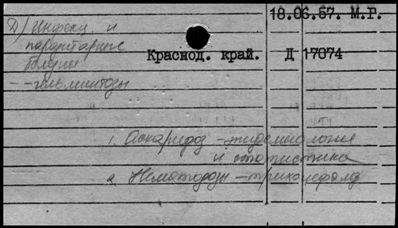 18.06.67. М.Р.
Д/ Инфекц. и
паразитарные
болезни
Краснод. край. Д 17074
-гельминтозы
1. Аскаридоз - эпидемиология
и статистика
2. Нематодозы - трихоцефалез